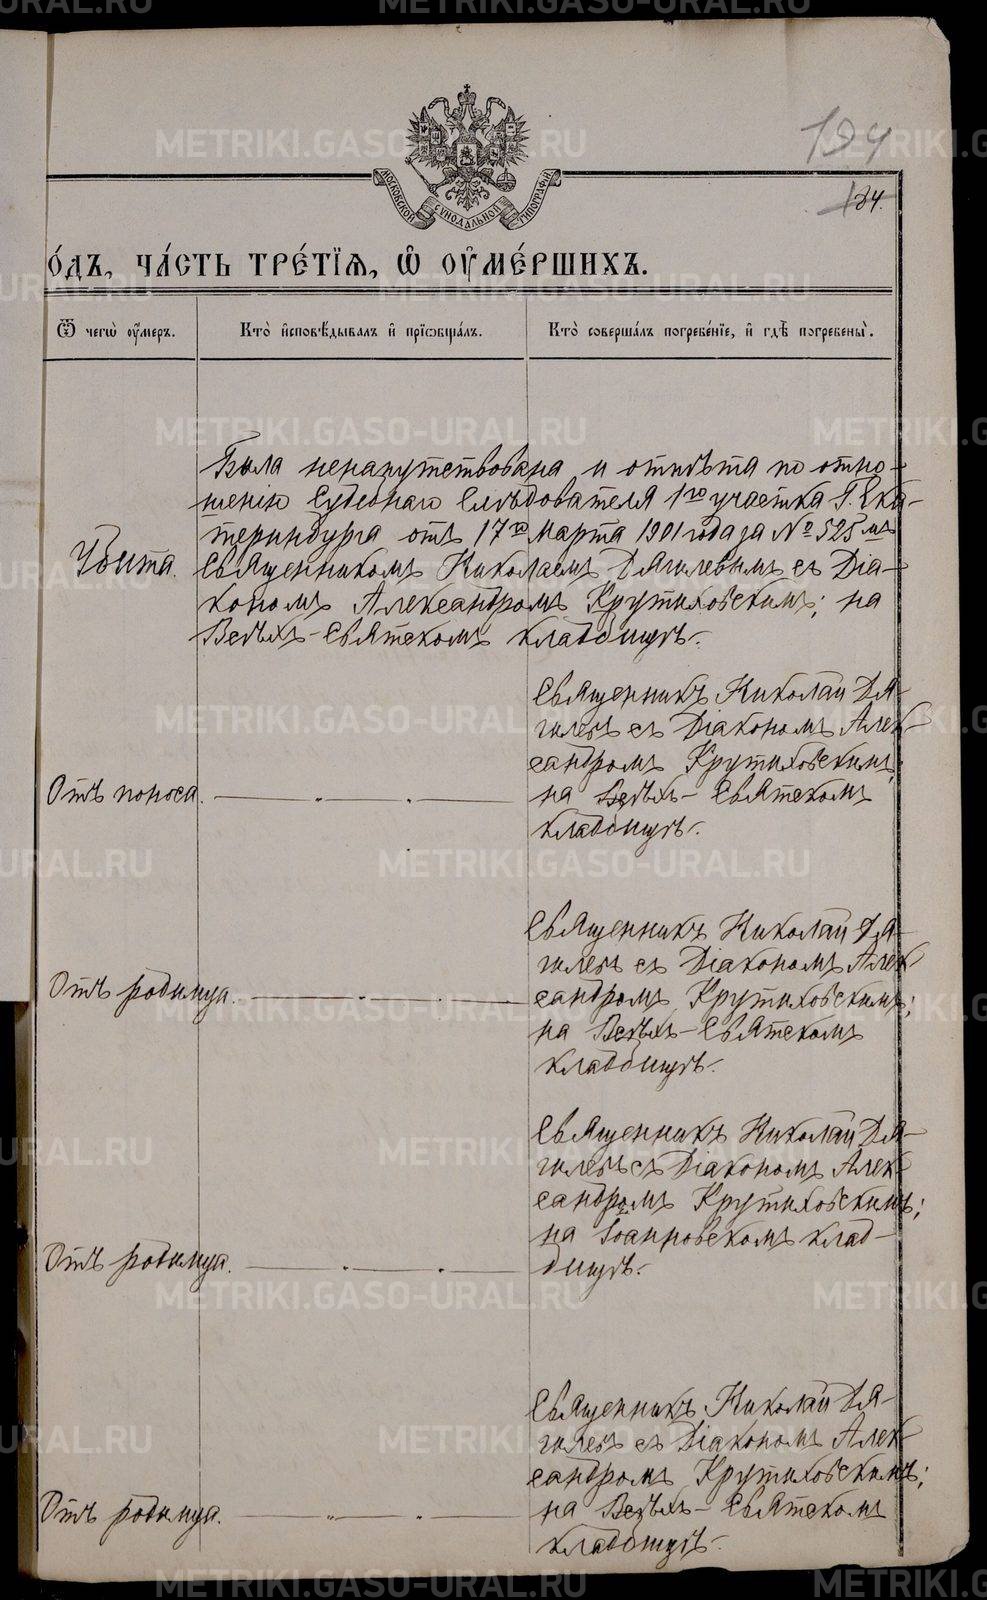 METRIKI.GASO-URAL.RU
194
184.
МОСКОВСКОЙ СѴНОДАЛЬНОЙ ТИПОГРАФІИ
О́ДЪ, ЧА́СТЬ ТРЕ́ТІѦ, Ѡ҆ ОУ҆МЕ́РШИХЪ.
Ѿ чегѡ̀ оу҆́меръ.
Кто̀ и҆сповѣ́дывалъ и҆ прїѡбща́лъ.
Кто̀ соверша́лъ погребе́нїе, и҆ гдѣ̀ погребены̀.
Убита.
Была ненапутствована и отпѣта по отно-
шенію Судебнаго Слѣдователя 1го участка Г. Ека-
теринбурга отъ 17го Марта 1901 года за № 525мъ
Священникомъ Николаемъ Дягилевымъ съ Діа-
кономъ Александромъ Крутиховскимъ; на
Всѣхъ-Святскомъ кладбищѣ.
Отъ поноса.
Священникъ Николай Дя-
гилевъ съ Діакономъ Алек-
сандромъ Крутиховскимъ;
на Всѣхъ-Святскомъ
кладбищѣ.
Отъ родимца.
Священникъ Николай Дя-
гилевъ съ Діакономъ Алек-
сандромъ Крутиховскимъ;
на Всѣхъ-Святскомъ
кладбищѣ.
Отъ родимца.
Священникъ Николай Дя-
гилевъ съ Діакономъ Алек-
сандромъ Крутиховскимъ;
на Іоанновскомъ клад-
бищѣ.
Отъ родимца.
Священникъ Николай Дя-
гилевъ съ Діакономъ Алек-
сандромъ Крутиховскимъ;
на Всѣхъ-Святскомъ
кладбищѣ.